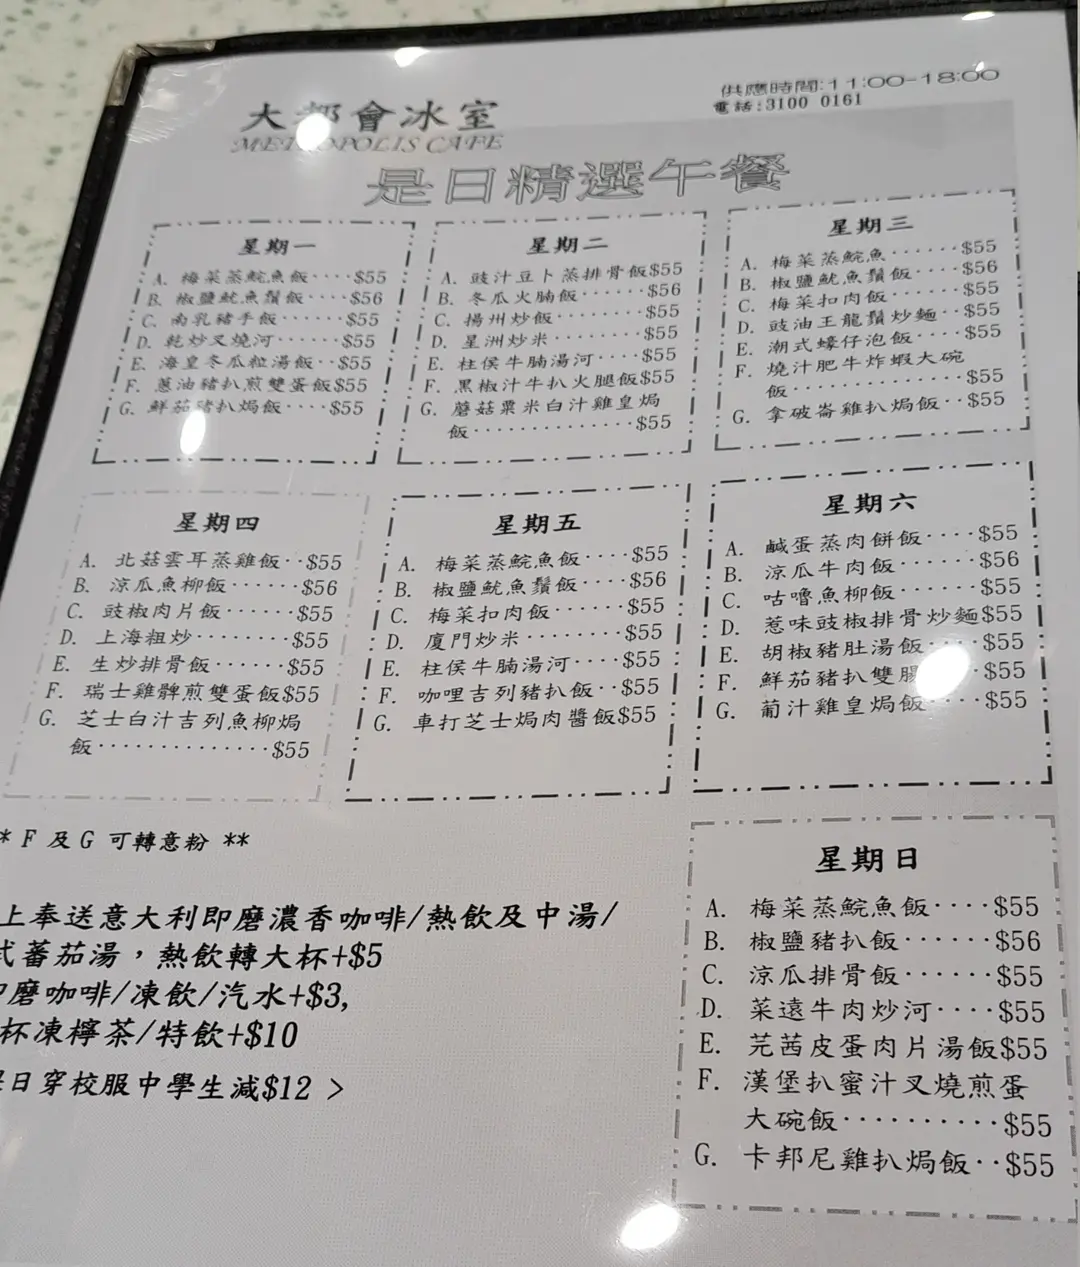 大都會冰室
METROPOLIS CAFE
供應時間:11:00-18:00
電話:3100 0161
是日精選午餐
星期一
A. 梅菜蒸鯇魚飯····$55
B. 椒鹽魷魚鬚飯····$56
C. 南乳豬手飯······$55
D. 乾炒叉燒河······$55
E. 海皇冬瓜粒湯飯··$55
F. 蔥油豬扒煎雙蛋飯$55
G. 鮮茄豬扒焗飯····$55
星期二
A. 豉汁豆卜蒸排骨飯$55
B. 冬瓜火腩飯······$56
C. 揚州炒飯········$55
D. 星洲炒米········$55
E. 柱侯牛腩湯河····$55
F. 黑椒汁牛扒火腿飯$55
G. 蘑菇粟米白汁雞皇焗
飯·············$55
星期三
A. 梅菜蒸鯇魚······$55
B. 椒鹽魷魚鬚飯····$56
C. 梅菜扣肉飯······$55
D. 豉油王龍鬚炒麵··$55
E. 潮式蠔仔泡飯····$55
F. 燒汁肥牛炸蝦大碗
飯··············$55
G. 拿破崙雞扒焗飯··$55
星期四
A. 北菇雲耳蒸雞飯··$55
B. 涼瓜魚柳飯······$56
C. 豉椒肉片飯······$55
D. 上海粗炒········$55
E. 生炒排骨飯······$55
F. 瑞士雞髀煎雙蛋飯$55
G. 芝士白汁吉列魚柳焗
飯··············$55
星期五
A. 梅菜蒸鯇魚飯····$55
B. 椒鹽魷魚鬚飯····$56
C. 梅菜扣肉飯······$55
D. 廈門炒米········$55
E. 柱侯牛腩湯河····$55
F. 咖哩吉列豬扒飯··$55
G. 車打芝士焗肉醬飯$55
星期六
A. 鹹蛋蒸肉餅飯····$55
B. 涼瓜牛肉飯······$56
C. 咕嚕魚柳飯······$55
D. 惹味豉椒排骨炒麵$55
E. 胡椒豬肚湯飯····$55
F. 鮮茄豬扒雙腸··$55
G. 葡汁雞皇焗飯····$55
* F 及 G 可轉意粉 **
上奉送意大利即磨濃香咖啡/熱飲及中湯/
式蕃茄湯，熱飲轉大杯+$5
即磨咖啡/凍飲/汽水+$3,
杯凍檸茶/特飲+$10
是日穿校服中學生減$12 >
星期日
A. 梅菜蒸鯇魚飯····$55
B. 椒鹽豬扒飯······$56
C. 涼瓜排骨飯······$55
D. 菜遠牛肉炒河····$55
E. 芫茜皮蛋肉片湯飯$55
F. 漢堡扒蜜汁叉燒煎蛋
大碗飯··········$55
G. 卡邦尼雞扒焗飯··$55